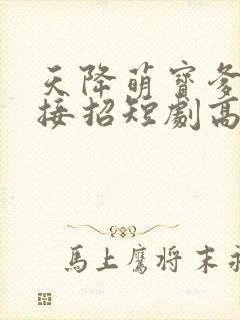 天降萌寶爹
接招短劇高
馬上鷹将末